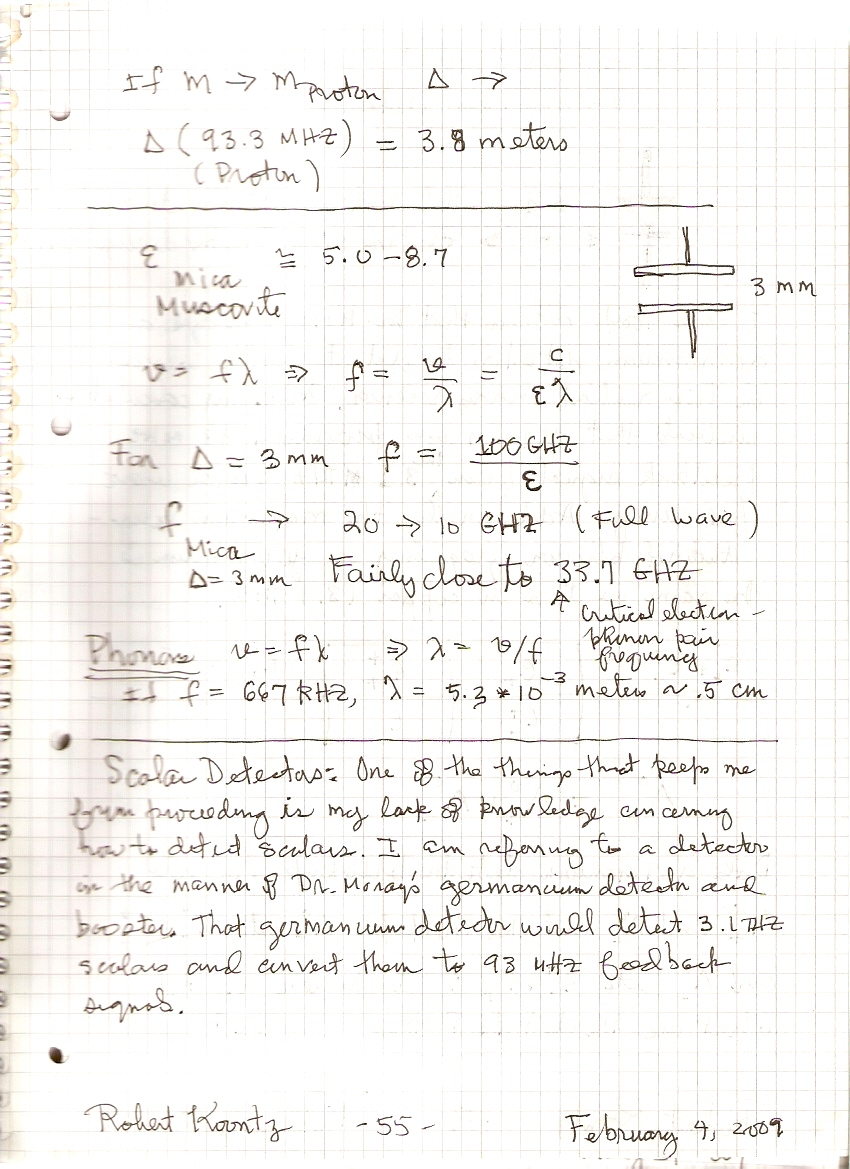 If m → m Proton Δ →
Δ (93.3 MHZ) = 3.8 meters
(Proton)
ε mica Muscovite ≅ 5.0 – 8.7
3 mm
v = fλ ⇒ f = v/λ = c/ελ
For Δ = 3 mm f = 100 GHZ/ε
f Mica → 20 → 10 GHZ (Full wave)
Δ = 3 mm Fairly close to 33.7 GHZ
↑ critical electron –
phonon pair
frequency
Phonons v = fλ ⇒ λ = v/f
If f = 667 kHZ, λ = 5.3 * 10⁻³ meters ~ .5 cm
Scalar Detectors: One of the things that keeps me
from proceeding is my lack of knowledge concerning
how to detect scalars. I am referring to a detector
in the manner of Dr. Moray's germancium detector and
booster. That germanium detector would detect 3.1 THZ
scalars and convert them to 93 MHz feedback
signals.
Robert Koontz - 55 - February 4, 2009